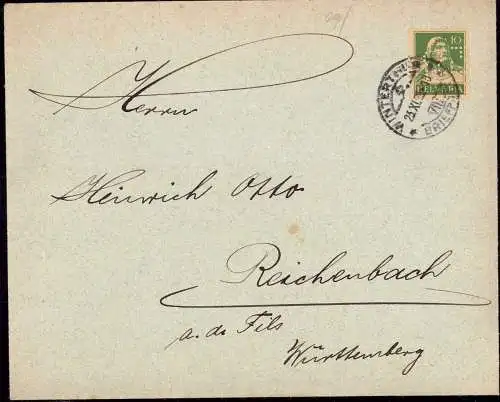 Herrn
Heinrich Otto
Reichenbach
a. d. Fils
Württemberg
10
HELVETIA
WINTERTHUR
BRIEF